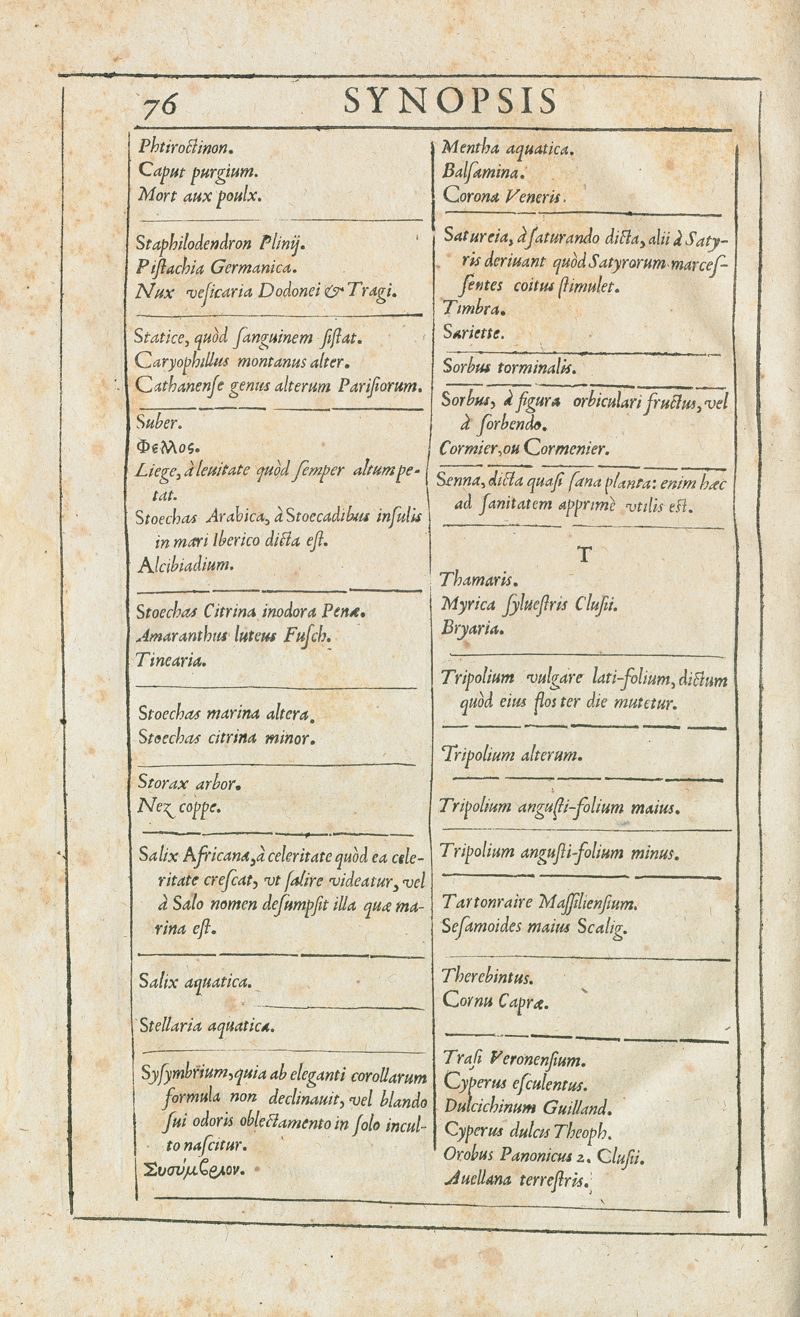 76 SYNOPSIS
Phtiroctinon.
Caput purgium.
Mort aux poulx.
Staphilodendron Plinij.
Pistachia Germanica.
Nux vesicaria Dodonei & Tragi.
Statice, quòd sanguinem sistat.
Caryophillus montanus alter.
Cathanense genus alterum Parisiorum.
Suber.
Φελλος.
Liege, à leuitate quòd semper altum pe-
tat.
Stoechas Arabica, à Stoecadibus insulis
in mari Iberico dicta est.
Alcibiadium.
Stoechas Citrina inodora Penæ.
Amaranthus luteus Fusch.
Tinearia.
Stoechas marina altera.
Stoechas citrina minor.
Storax arbor.
Nez coppe.
Salix Africana, à celeritate quòd ea cele-
ritate crescat, vt salire videatur, vel
à Salo nomen desumpsit illa quæ ma-
rina est.
Salix aquatica.
Stellaria aquatica.
Sysymbrium, quia ab eleganti corollarum
formula non declinauit, vel blando
sui odoris oblectamento in solo incul-
to nascitur.
Συσύμβριον.
Mentha aquatica.
Balsamina.
Corona Veneris.
Satureia, à saturando dicta, alii à Saty-
ris deriuant quòd Satyrorum marces-
sentes coitus stimulet.
Timbra.
Sariette.
Sorbus torminalis.
Sorbus, à figura orbiculari fructus, vel
à sorbendo.
Cormier, ou Cormenier.
Senna, dicta quasi sana planta: enim hæc
ad sanitatem apprimè vtilis est.
T
Thamaris.
Myrica syluestris Clusii.
Bryaria.
Tripolium vulgare lati-folium, dictum
quòd eius flos ter die mutetur.
Tripolium alterum.
Tripolium angusti-folium maius.
Tripolium angusti-folium minus.
Tartonraire Massiliensium.
Sesamoides maius Scalig.
Therebintus.
Cornu Capræ.
Trasi Veronensium.
Cyperus esculentus.
Dulcichinum Guilland.
Cyperus dulcis Theoph.
Orobus Panonicus 2. Clusii.
Auellana terrestris.